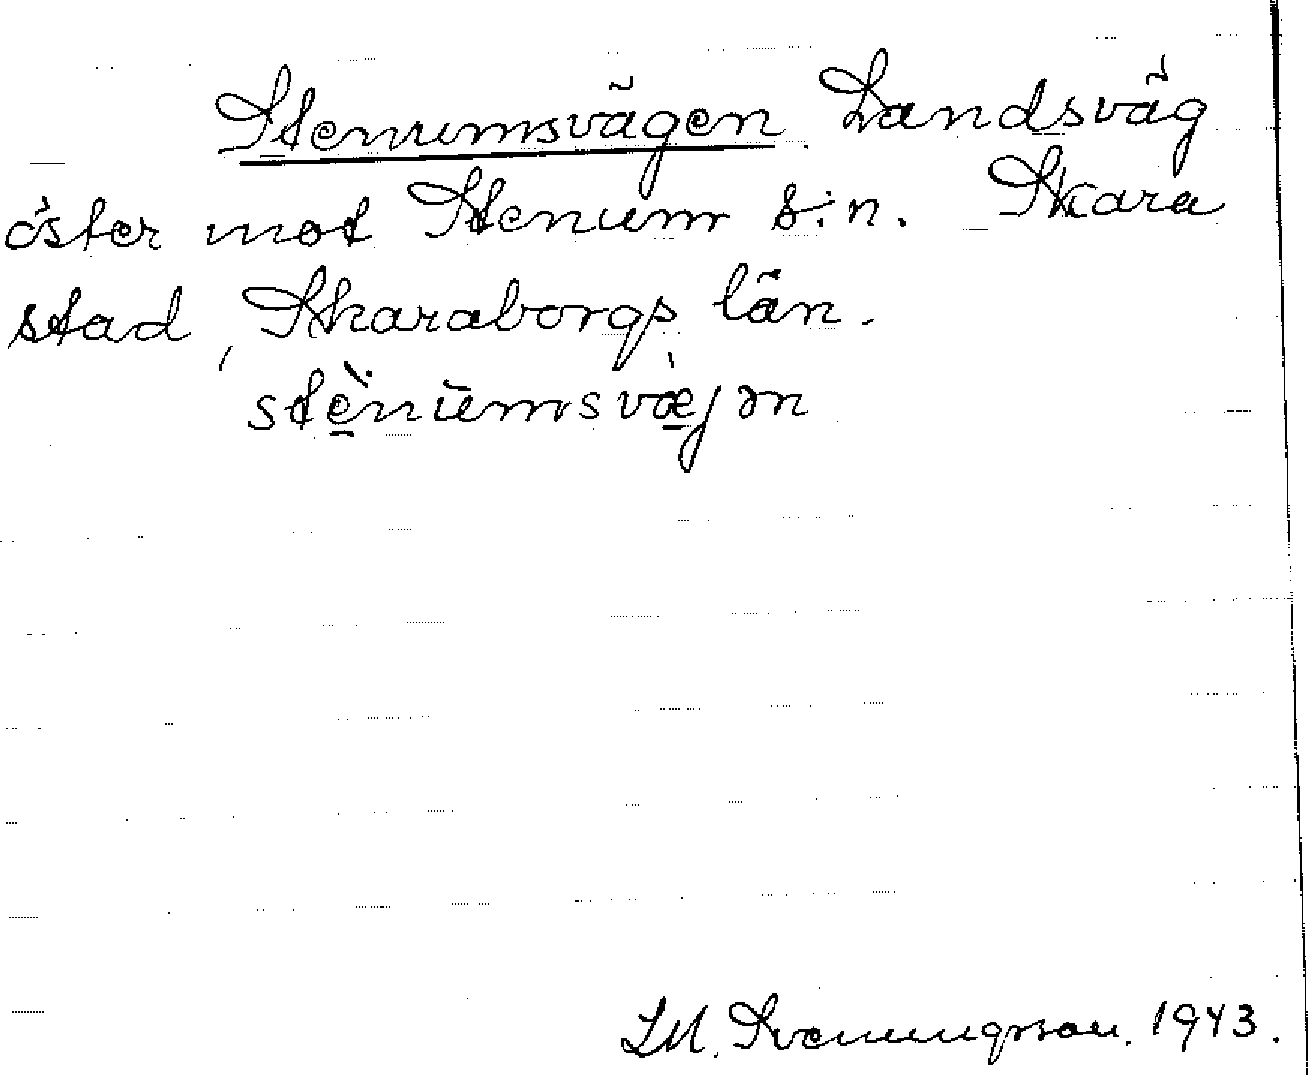 Stenumsvägen. Landsväg
öster mot Stenum s:n. Skara
stad, Skaraborgs län.
stènumsvæjən
Svenungsson. 1943.